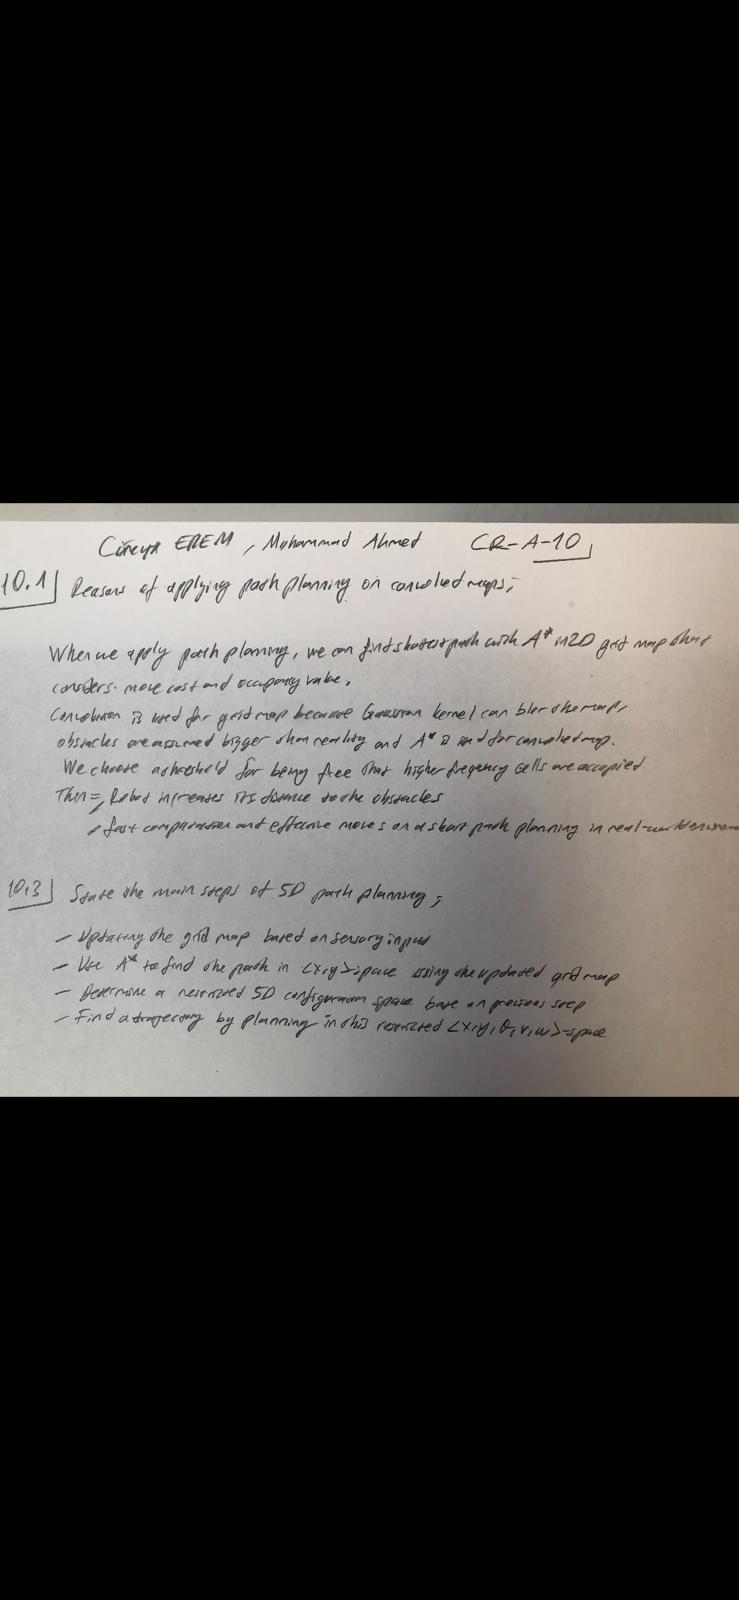 Cüneyt EREM, Muhammad Ahmed CR-A-10
10.1 Reasons of applying path planning on convolved maps;
When we apply path planning, we can find shortest path with A* in 2D grid map that
considers move cost and occupancy value.
Convolution is used for grid map because Gaussian kernel can blur the map,
obstacles are assumed bigger than reality and A* is used for convolved map.
We choose a threshold for being free that higher frequency cells are occupied
Then = Robot increases its distance to the obstacles
fast computation and effective moves on a short path planning in real-world
10.3 State the main steps of 5D path planning;
- Updating the grid map based on sensory input
- Use A* to find the path in <x,y>-space using the updated grid map
- Determine a restricted 5D configuration space base on previous step
- Find a trajectory by planning in this restricted <x,y,θ,v,w>-space